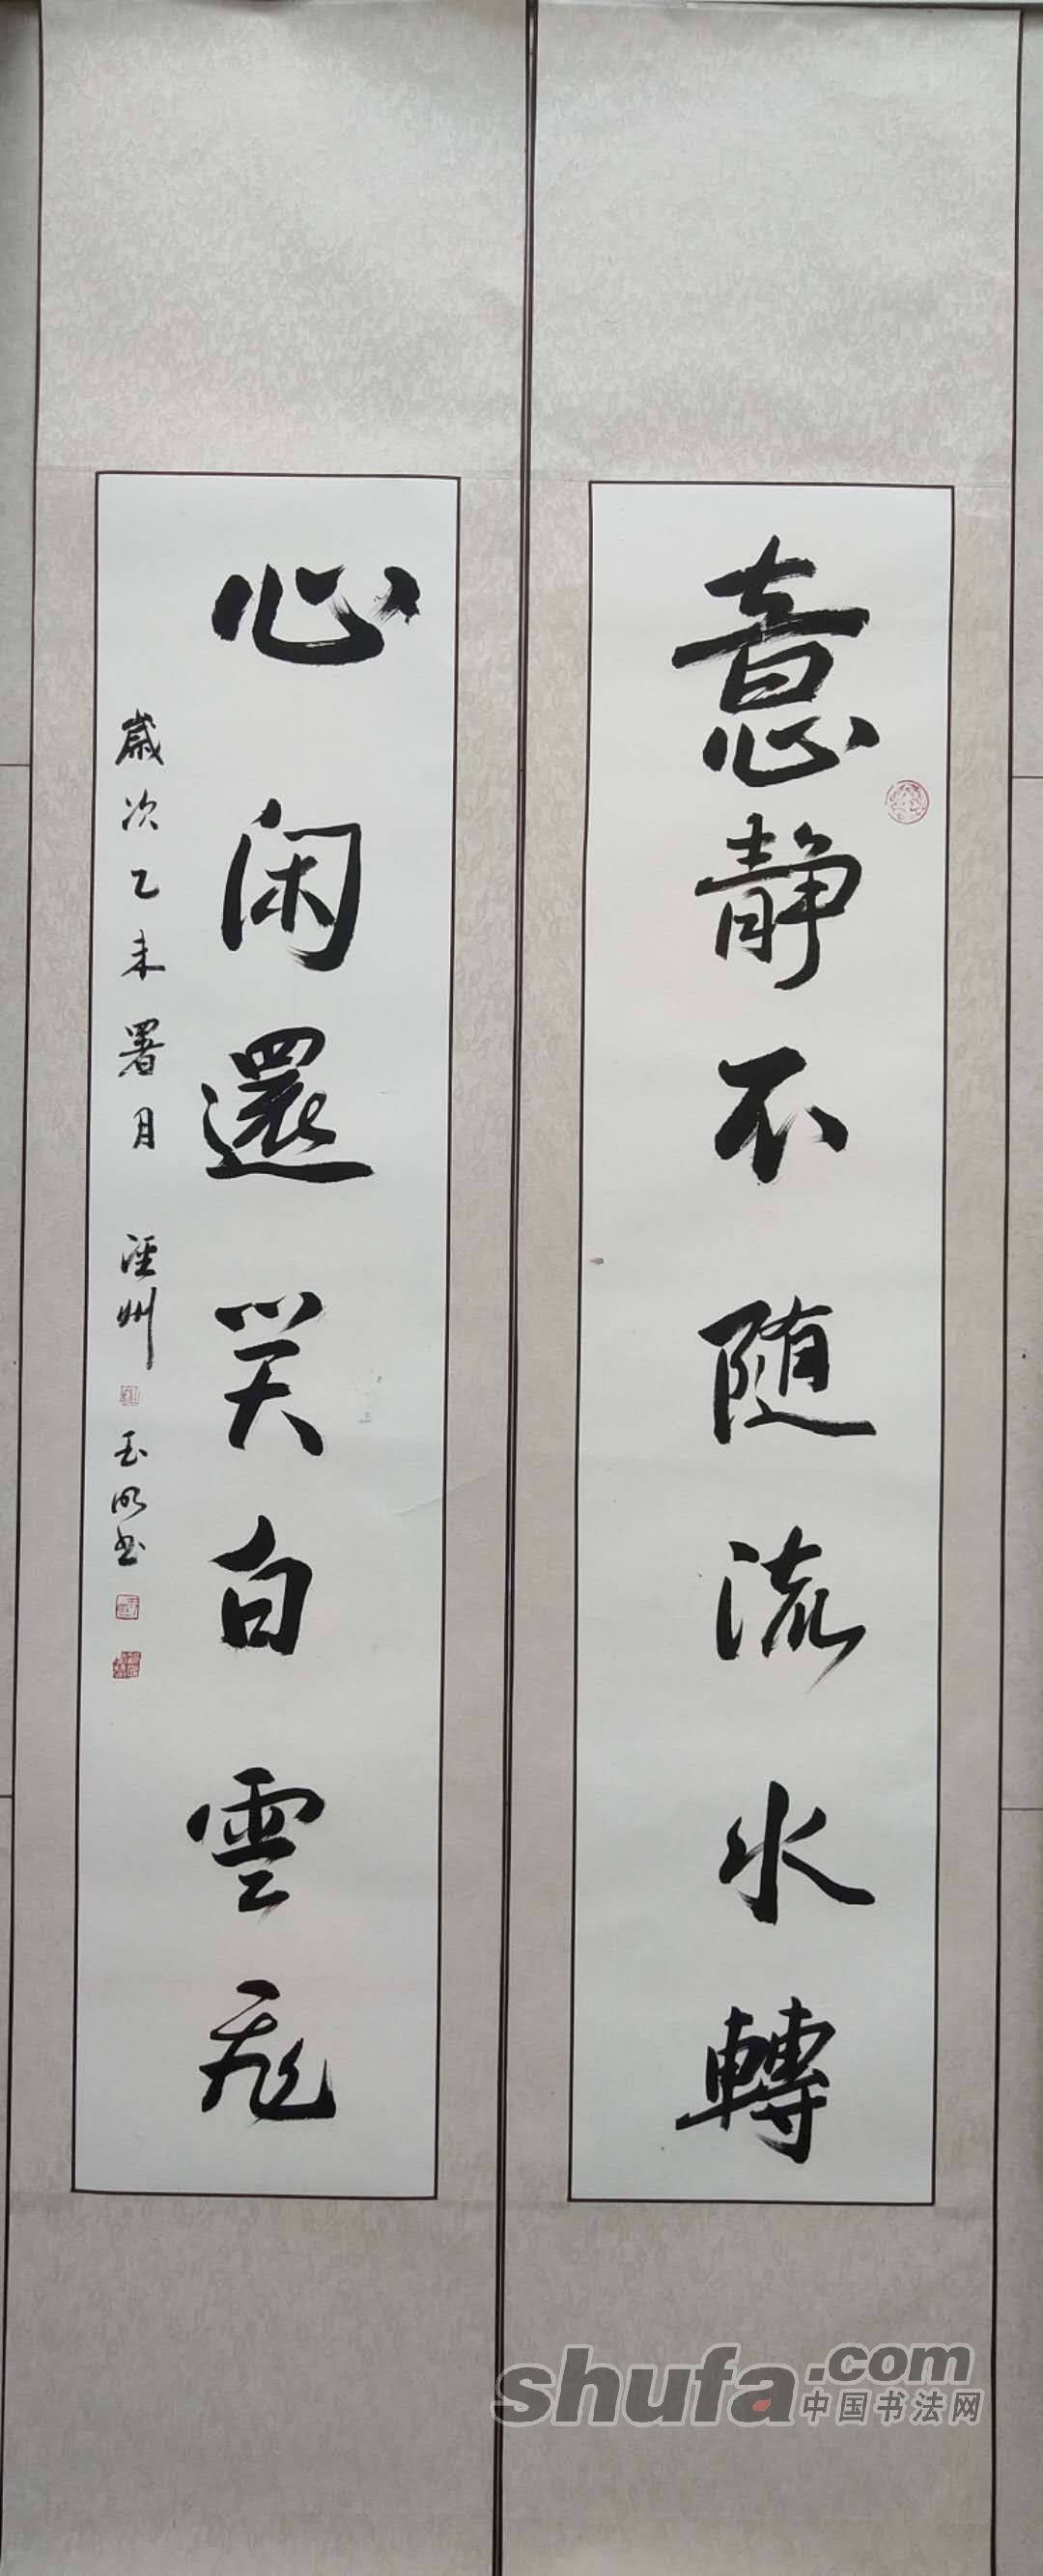 意静不随流水轉
心闲還笑白雲飛
歲次乙未署月 涇州 玉明书
shufa.com
中国书法网